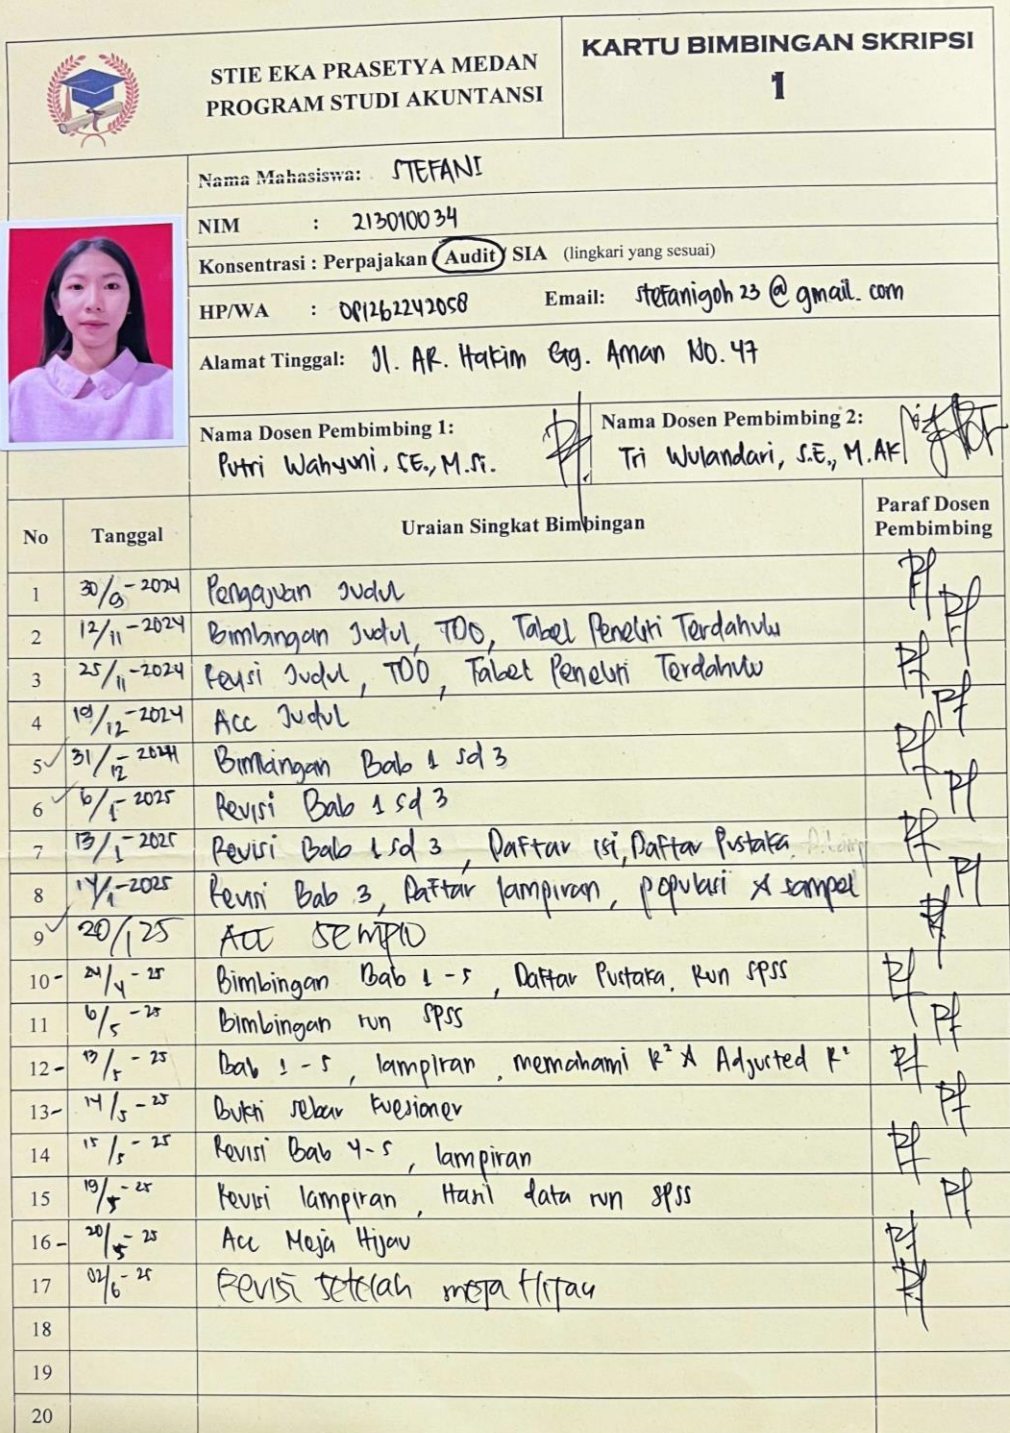 STIE EKA PRASETYA MEDAN
PROGRAM STUDI AKUNTANSI
KARTU BIMBINGAN SKRIPSI
1
Nama Mahasiswa: STEFANI
NIM : 213010034
Konsentrasi : Perpajakan / Audit / SIA (lingkari yang sesuai)
HP/WA : 081262242058 Email: stefanigoh23@gmail.com
Alamat Tinggal: Jl. AR. Hakim Gg. Aman No. 47
Nama Dosen Pembimbing 1:
Putri Wahyuni, SE., M.Si.
Nama Dosen Pembimbing 2:
Tri Wulandari, S.E., M.AK
No Tanggal Uraian Singkat Bimbingan Paraf Dosen Pembimbing
1 30/9-2024 Pengajuan Judul
2 12/11-2024 Bimbingan Judul, TOO, Tabel Peneliti Terdahulu
3 25/11-2024 Revisi Judul, TOO, Tabel Peneliti Terdahulu
4 19/12-2024 Acc Judul
5 31/12-2024 Bimbingan Bab 1 sd 3
6 6/1-2025 Revisi Bab 1 sd 3
7 13/1-2025 Revisi Bab 1 sd 3, Daftar isi, Daftar Pustaka
8 14/1-2025 Revisi Bab 3, Daftar lampiran, populasi & sampel
9 20/1 25 ACC SEMPRO
10 - 24/4 - 25 Bimbingan Bab 1 - 5, Daftar Pustaka, Run SPSS
11 6/5 - 25 Bimbingan run SPSS
12 - 13/5 - 25 Bab 1 - 5, lampiran, memahami R² & Adjusted R²
13 - 14/5 - 25 Bukti sebar kuesioner
14 15/5 - 25 Revisi Bab 4-5, lampiran
15 19/5 - 25 Revisi lampiran, Hasil data run SPSS
16 - 20/5 - 25 Acc Meja Hijau
17 02/6 - 25 Revisi setelah meja Hijau
18
19
20